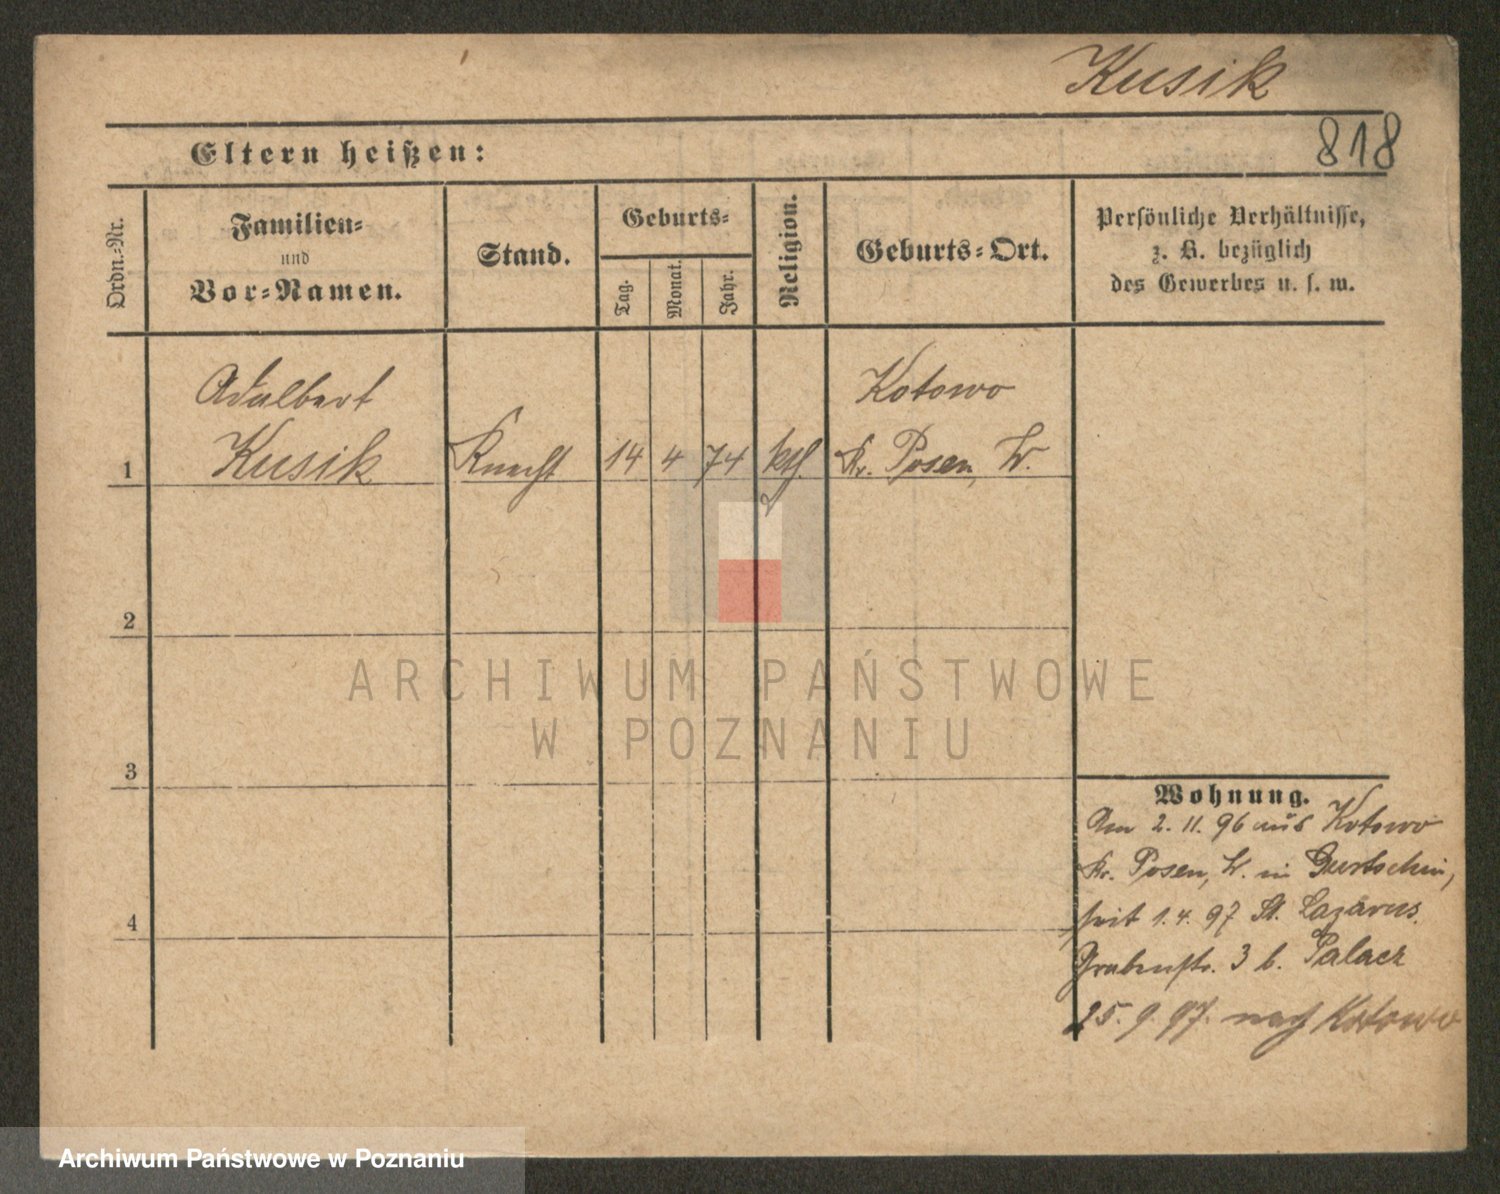 Kusik
818
Eltern heißen:
Ordn.-Nr.
Familien-
und
Vor-Namen.
Stand.
Geburts-
Tag.
Monat.
Jahr.
Religion.
Geburts-Ort.
Persönliche Verhältnisse,
z. B. bezüglich
des Gewerbes u. s. w.
Adalbert
Kotowo
1 Kusik Knecht 14 4 74 kth. Kr. Posen, W.
2
ARCHIWUM PAŃSTWOWE
W POZNANIU
3
Wohnung.
Am 2. 11. 96 aus Kotowo
Kr. Posen, W. in Gurtschin,
seit 1. 4. 97 St. Lazarus.
4
Grabenstr. 3 b. Palacz
25. 9. 97. nach Kotowo
Archiwum Państwowe w Poznaniu